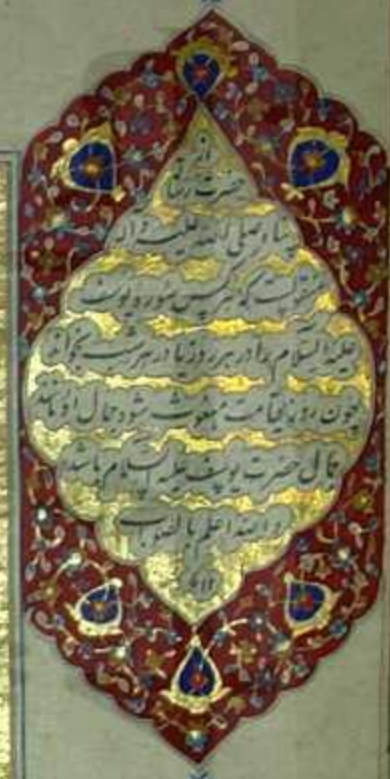 از
حضرت رسالت
پناه صلی الله علیه و آله
منقولست که هر کس سوره یوسف
علیه السلام را در هر روز یا در هر شب بخواند
چون روز قیامت مبعوث شود جمال او مانند
جمال حضرت یوسف علیه السلام باشد
والله اعلم بالصواب
۱۲